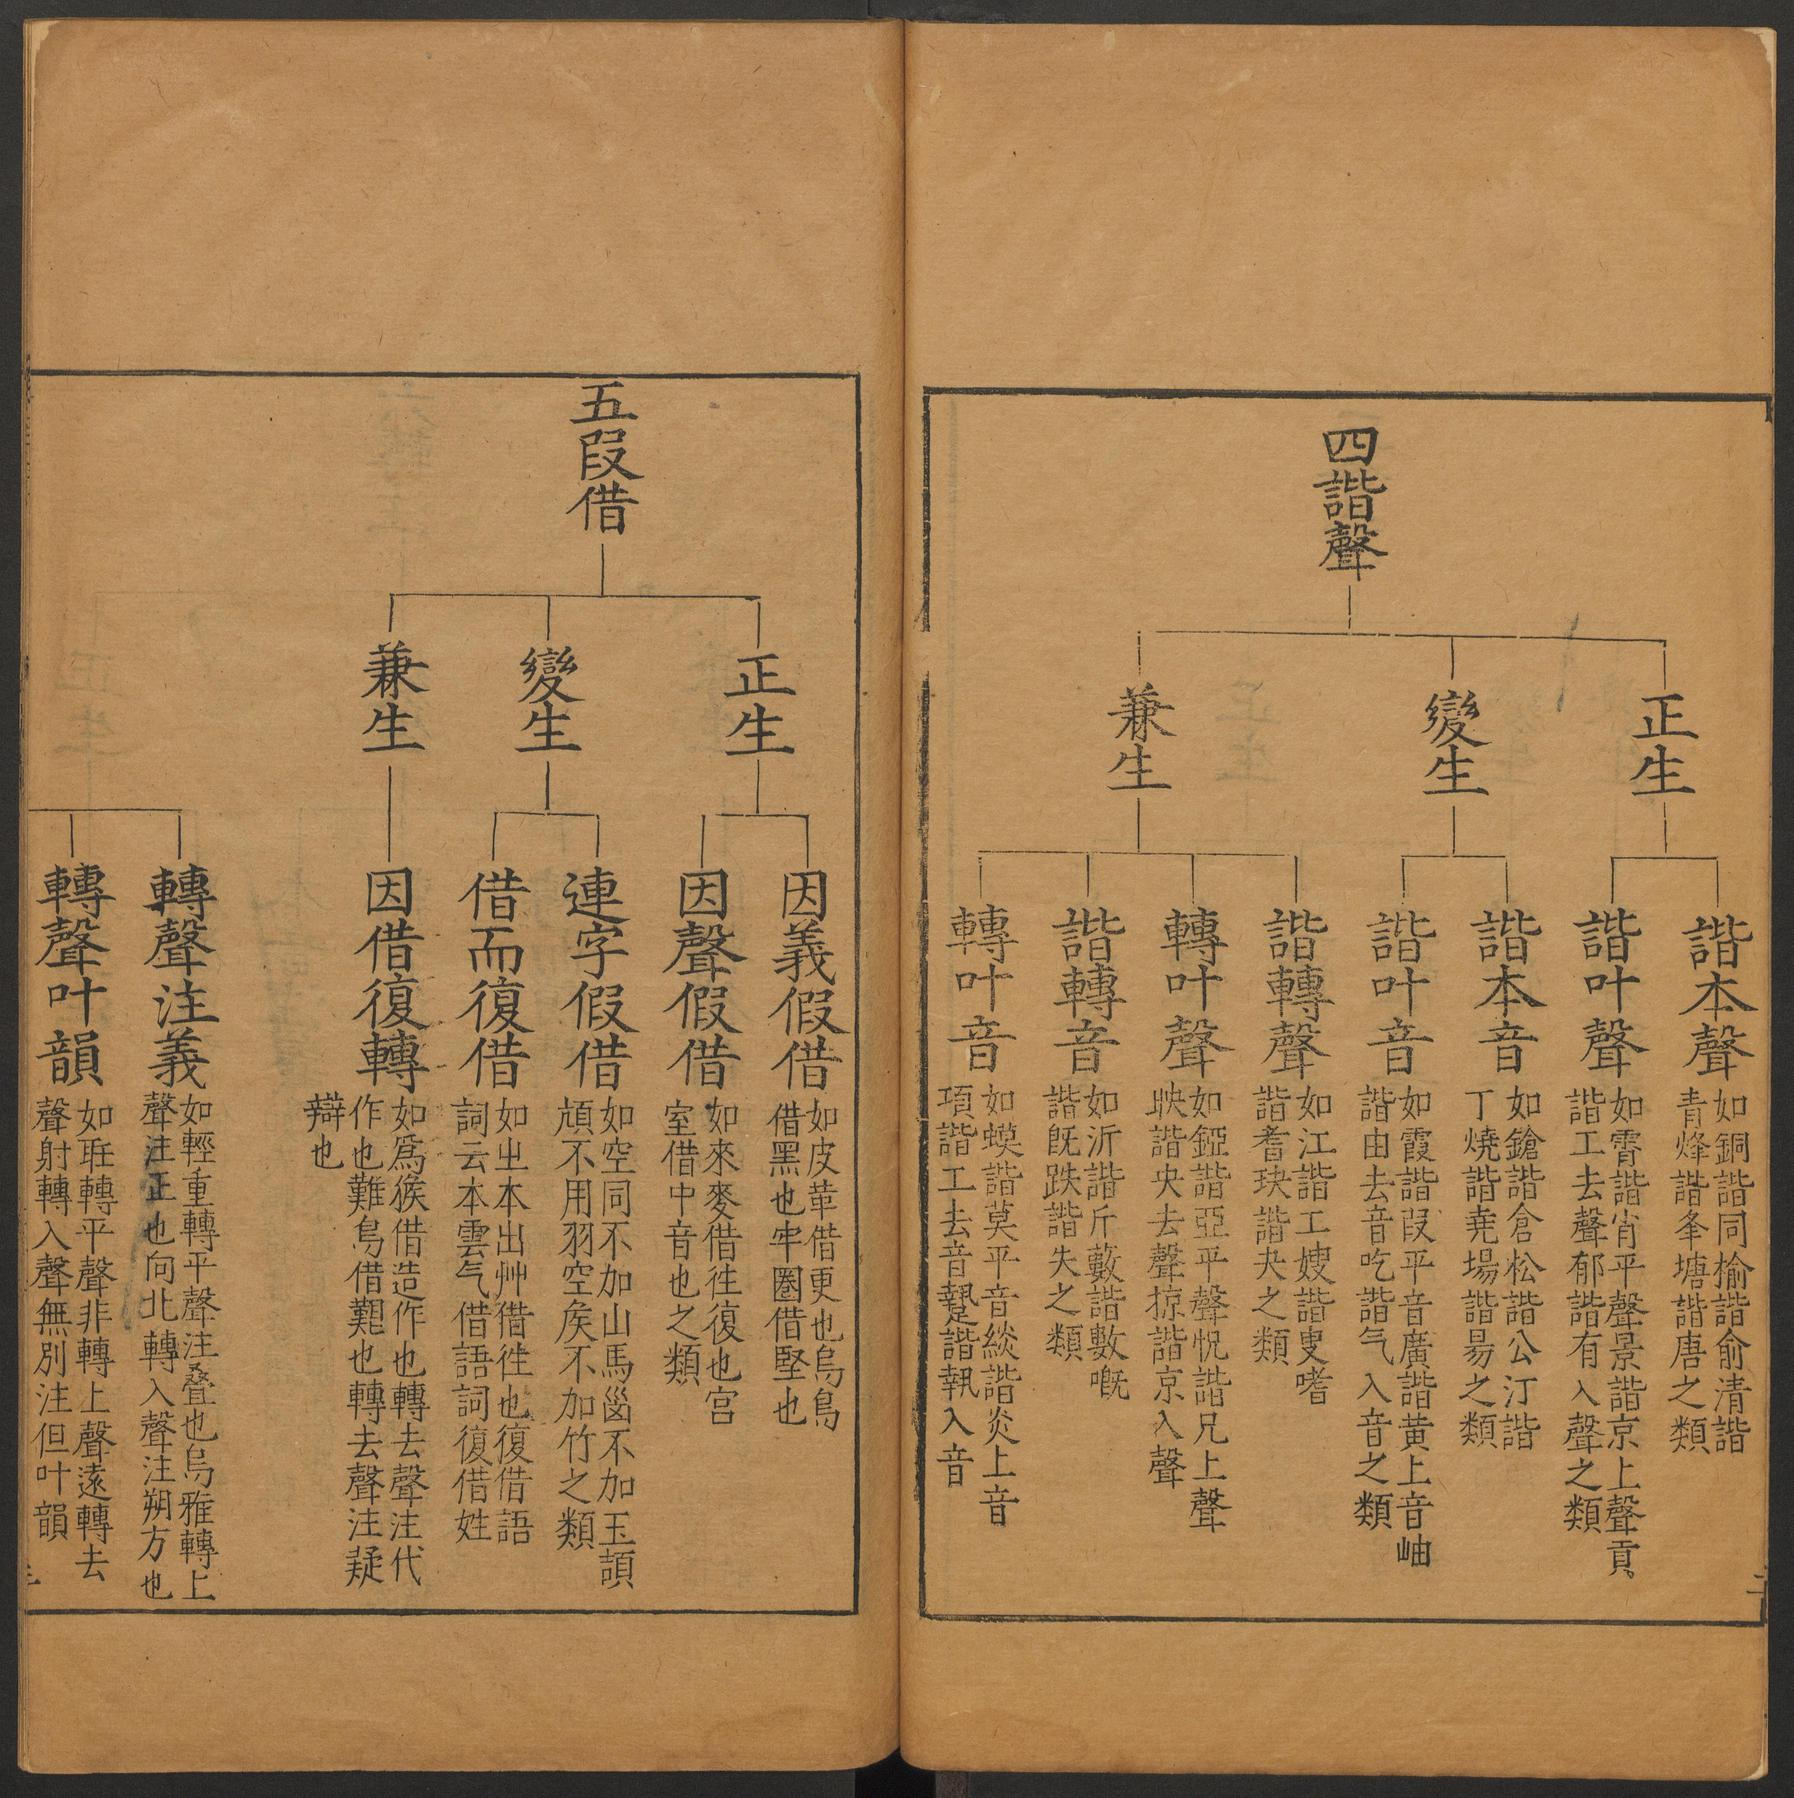 四諧聲
正生
諧本聲
如銅諧同榆諧俞清諧
青烽諧夆塘諧唐之類
諧叶聲
如霄諧肖平聲景諧京上聲貢
諧工去聲郁諧有入聲之類
變生
諧本音
如鎗諧倉松諧公汀諧
丁燒諧堯場諧昜之類
諧叶音
如霞諧叚平音廣諧黄上音岫
諧由去音吃諧气入音之類
兼生
諧轉聲
如江諧工嫂諧叟嗜
諧耆玦諧夬之類
轉叶聲
如錏諧亞平聲怳諧兄上聲
映諧央去聲掠諧京入聲
諧轉音
如沂諧斤藪諧數嘅
諧旣跌諧失之類
轉叶音
如蟆諧莫平音緂諧炎上音
項諧工去音㲲諧執入音
五叚借
正生
因義假借
如皮革借更也烏鳥
借黑也牢圈借堅也
因聲假借
如來麥借徃復也宫
室借中音也之類
變生
連字假借
如空同不加山馬甾不加玉頡
頏不用羽空矦不加竹之類
借而復借
如㞢本出艸借徃也復借語
詞云本雲气借語詞復借姓
兼生
因借復轉
如爲猴借造作也轉去聲注代
作也難鳥借艱也轉去聲注疑
辯也
轉聲注義
如輕重轉平聲注叠也烏雅轉上
聲注正也向北轉入聲注朔方也
轉聲叶韻
如轉平聲非轉上聲逺轉去
聲射轉入聲無別注但叶韻